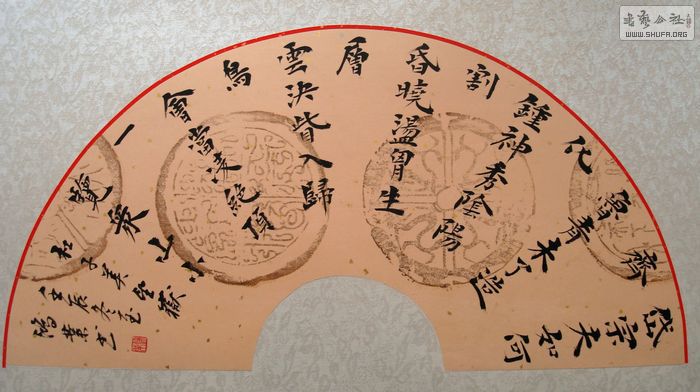 岱宗夫如何
齊
魯青未了造
化
鍾神秀陰陽
割
昏曉盪胷生
層
雲決眥入歸
鳥
會當凌絕頂
一
覽衆山小
杜子美望嶽
壬辰冬
鴻業書
書藝公社
WWW.SHUFA.ORG